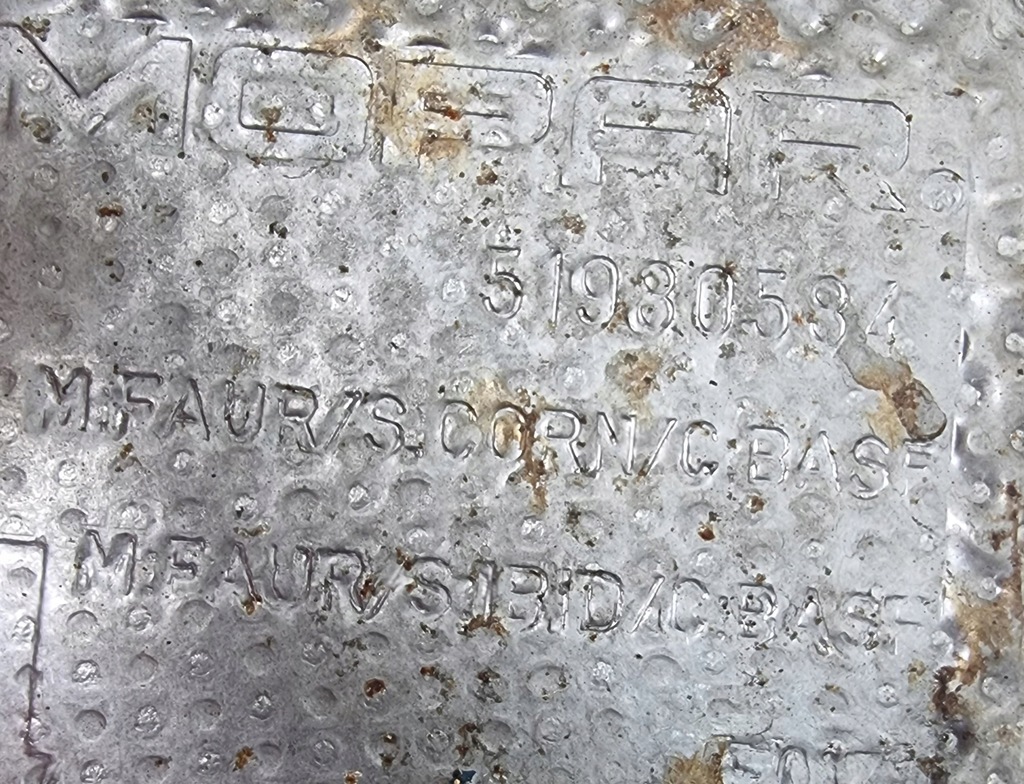 MOPAR
51980584
M.FAUR/S.CORN/C.BASF
M.FAUR/S.IBID/C.BASF